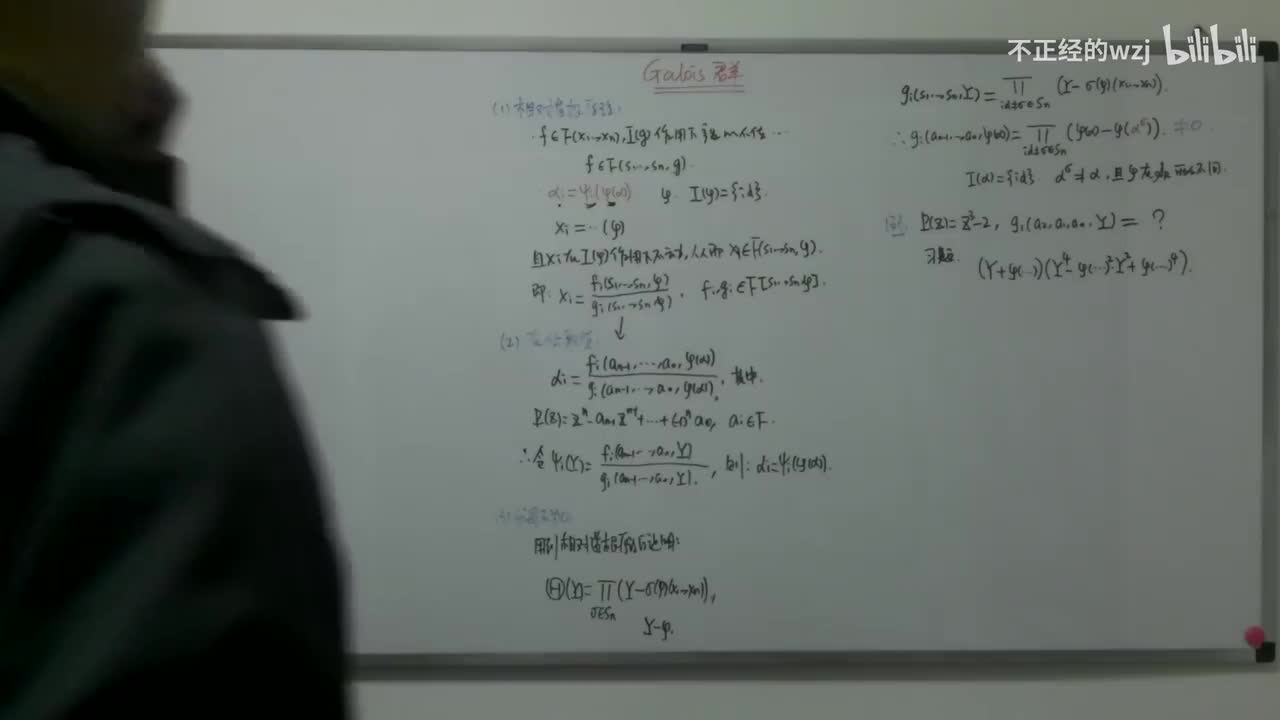 不正经的wzj bilibili
Galois 群
(1) 相对
f∈F(x₁…xₙ), I(g) 作用下不变 …
f∈F(s₁…sₙ, g).
αᵢ=ψᵢ(φ(α)) φ I(φ)={id}.
xᵢ=…(φ)
且xᵢ在I(φ)作用下不变, 从而 xᵢ∈F(s₁…sₙ, φ).
即: xᵢ= fᵢ(s₁…sₙ,φ) / gᵢ(s₁…sₙ,φ) , fᵢ,gᵢ∈F[s₁…sₙ,φ].
↓
(2)
αᵢ= fᵢ(aₙ₋₁,…,a₀,φ(α)) / gᵢ(aₙ₋₁,…,a₀,φ(α)) , 其中.
P(z)=zⁿ-aₙ₋₁zⁿ⁻¹+…+(-1)ⁿa₀, aᵢ∈F.
∴令 ψᵢ(Y)= fᵢ(aₙ₋₁…,a₀,Y) / gᵢ(aₙ₋₁…,a₀,Y) , 则: αᵢ=ψᵢ(φ(α)).
(3) 分母≠0
用到相对 证明:
Θ(Y)=∏(Y-σ(φ)(x₁…xₙ)),
σ∈Sₙ
Y-φ.
gᵢ(s₁…sₙ,Y)=∏ (Y-σ(φ)(x₁…xₙ)).
id≠σ∈Sₙ
∴gᵢ(aₙ₋₁…a₀,φ(α))=∏ (φ(α)-φ(α^σ)). ≠0.
id≠σ∈Sₙ
I(α)={id} α^σ≠α, 且φ在
例. P(z)=z³-2, gᵢ(a₂,a₁,a₀,Y)= ?
习题. (Y+φ(…))(Y⁴-φ(…)²Y²+φ(…)⁴).